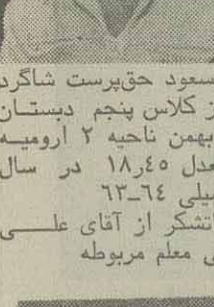 سعود حق‌پرست شاگرد
ز کلاس پنجم دبستان
بهمن ناحیه ۲ ارومیه
عدل ۱۸٫۴۵ در سال
یلی ۶۴ــ۶۳
تشکر از آقای علی
ی معلم مربوطه